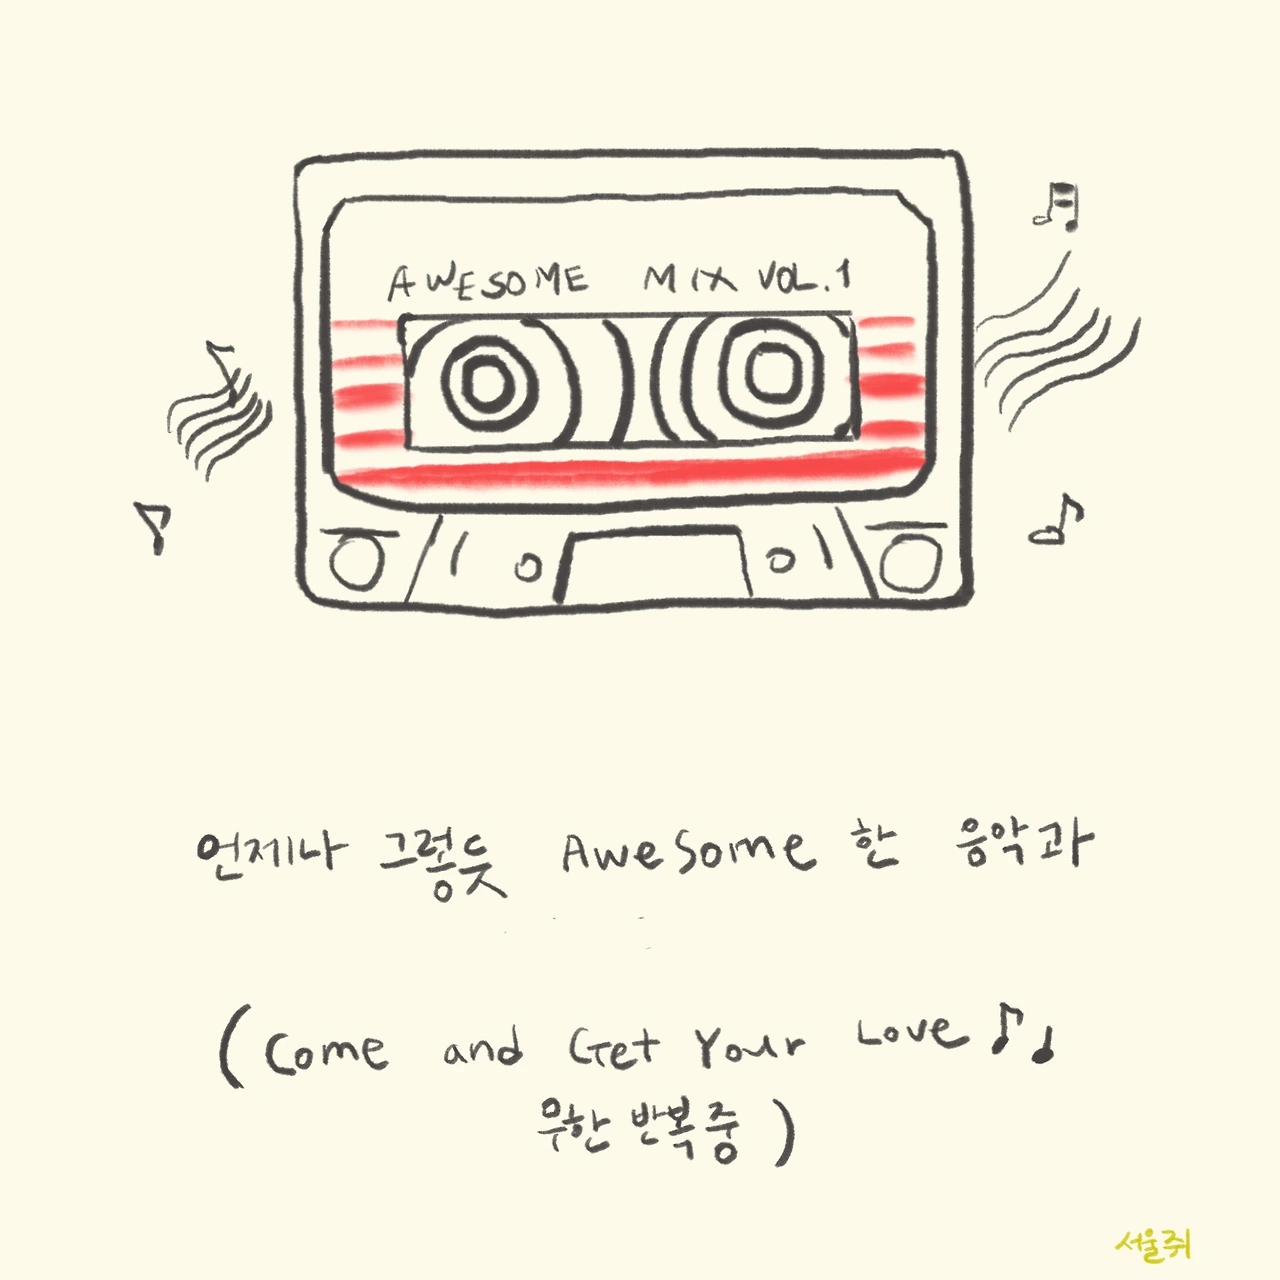 AWESOME MIX VOL.1
언제나 그렇듯 Awesome 한 음악과
(Come and Get Your Love♪♩
무한 반복중)
서울쥐